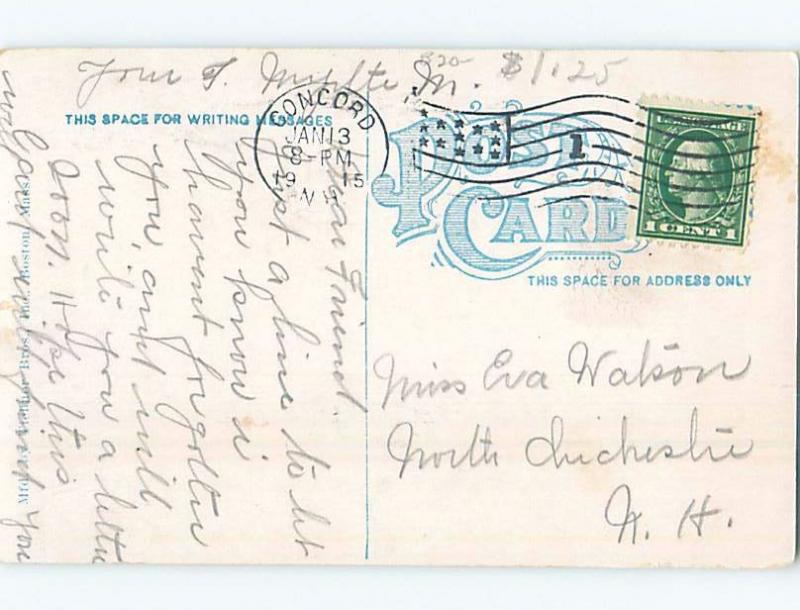 Your F. M. $20 $1.25
THIS SPACE FOR WRITING MESSAGES
CONCORD
JAN 13
8-PM
1915
N.H.
1
POST
CARD
U.S. POSTAGE
1 CENT 1
THIS SPACE FOR ADDRESS ONLY
Dear Friend
Just a line to let
you know i
havent forgotten
you, and will
write you a letter
soon. Hope this
Card will find you
well
Miss Eva Watson
North Chichester
N. H.
Bros., Inc., Boston, Mass.